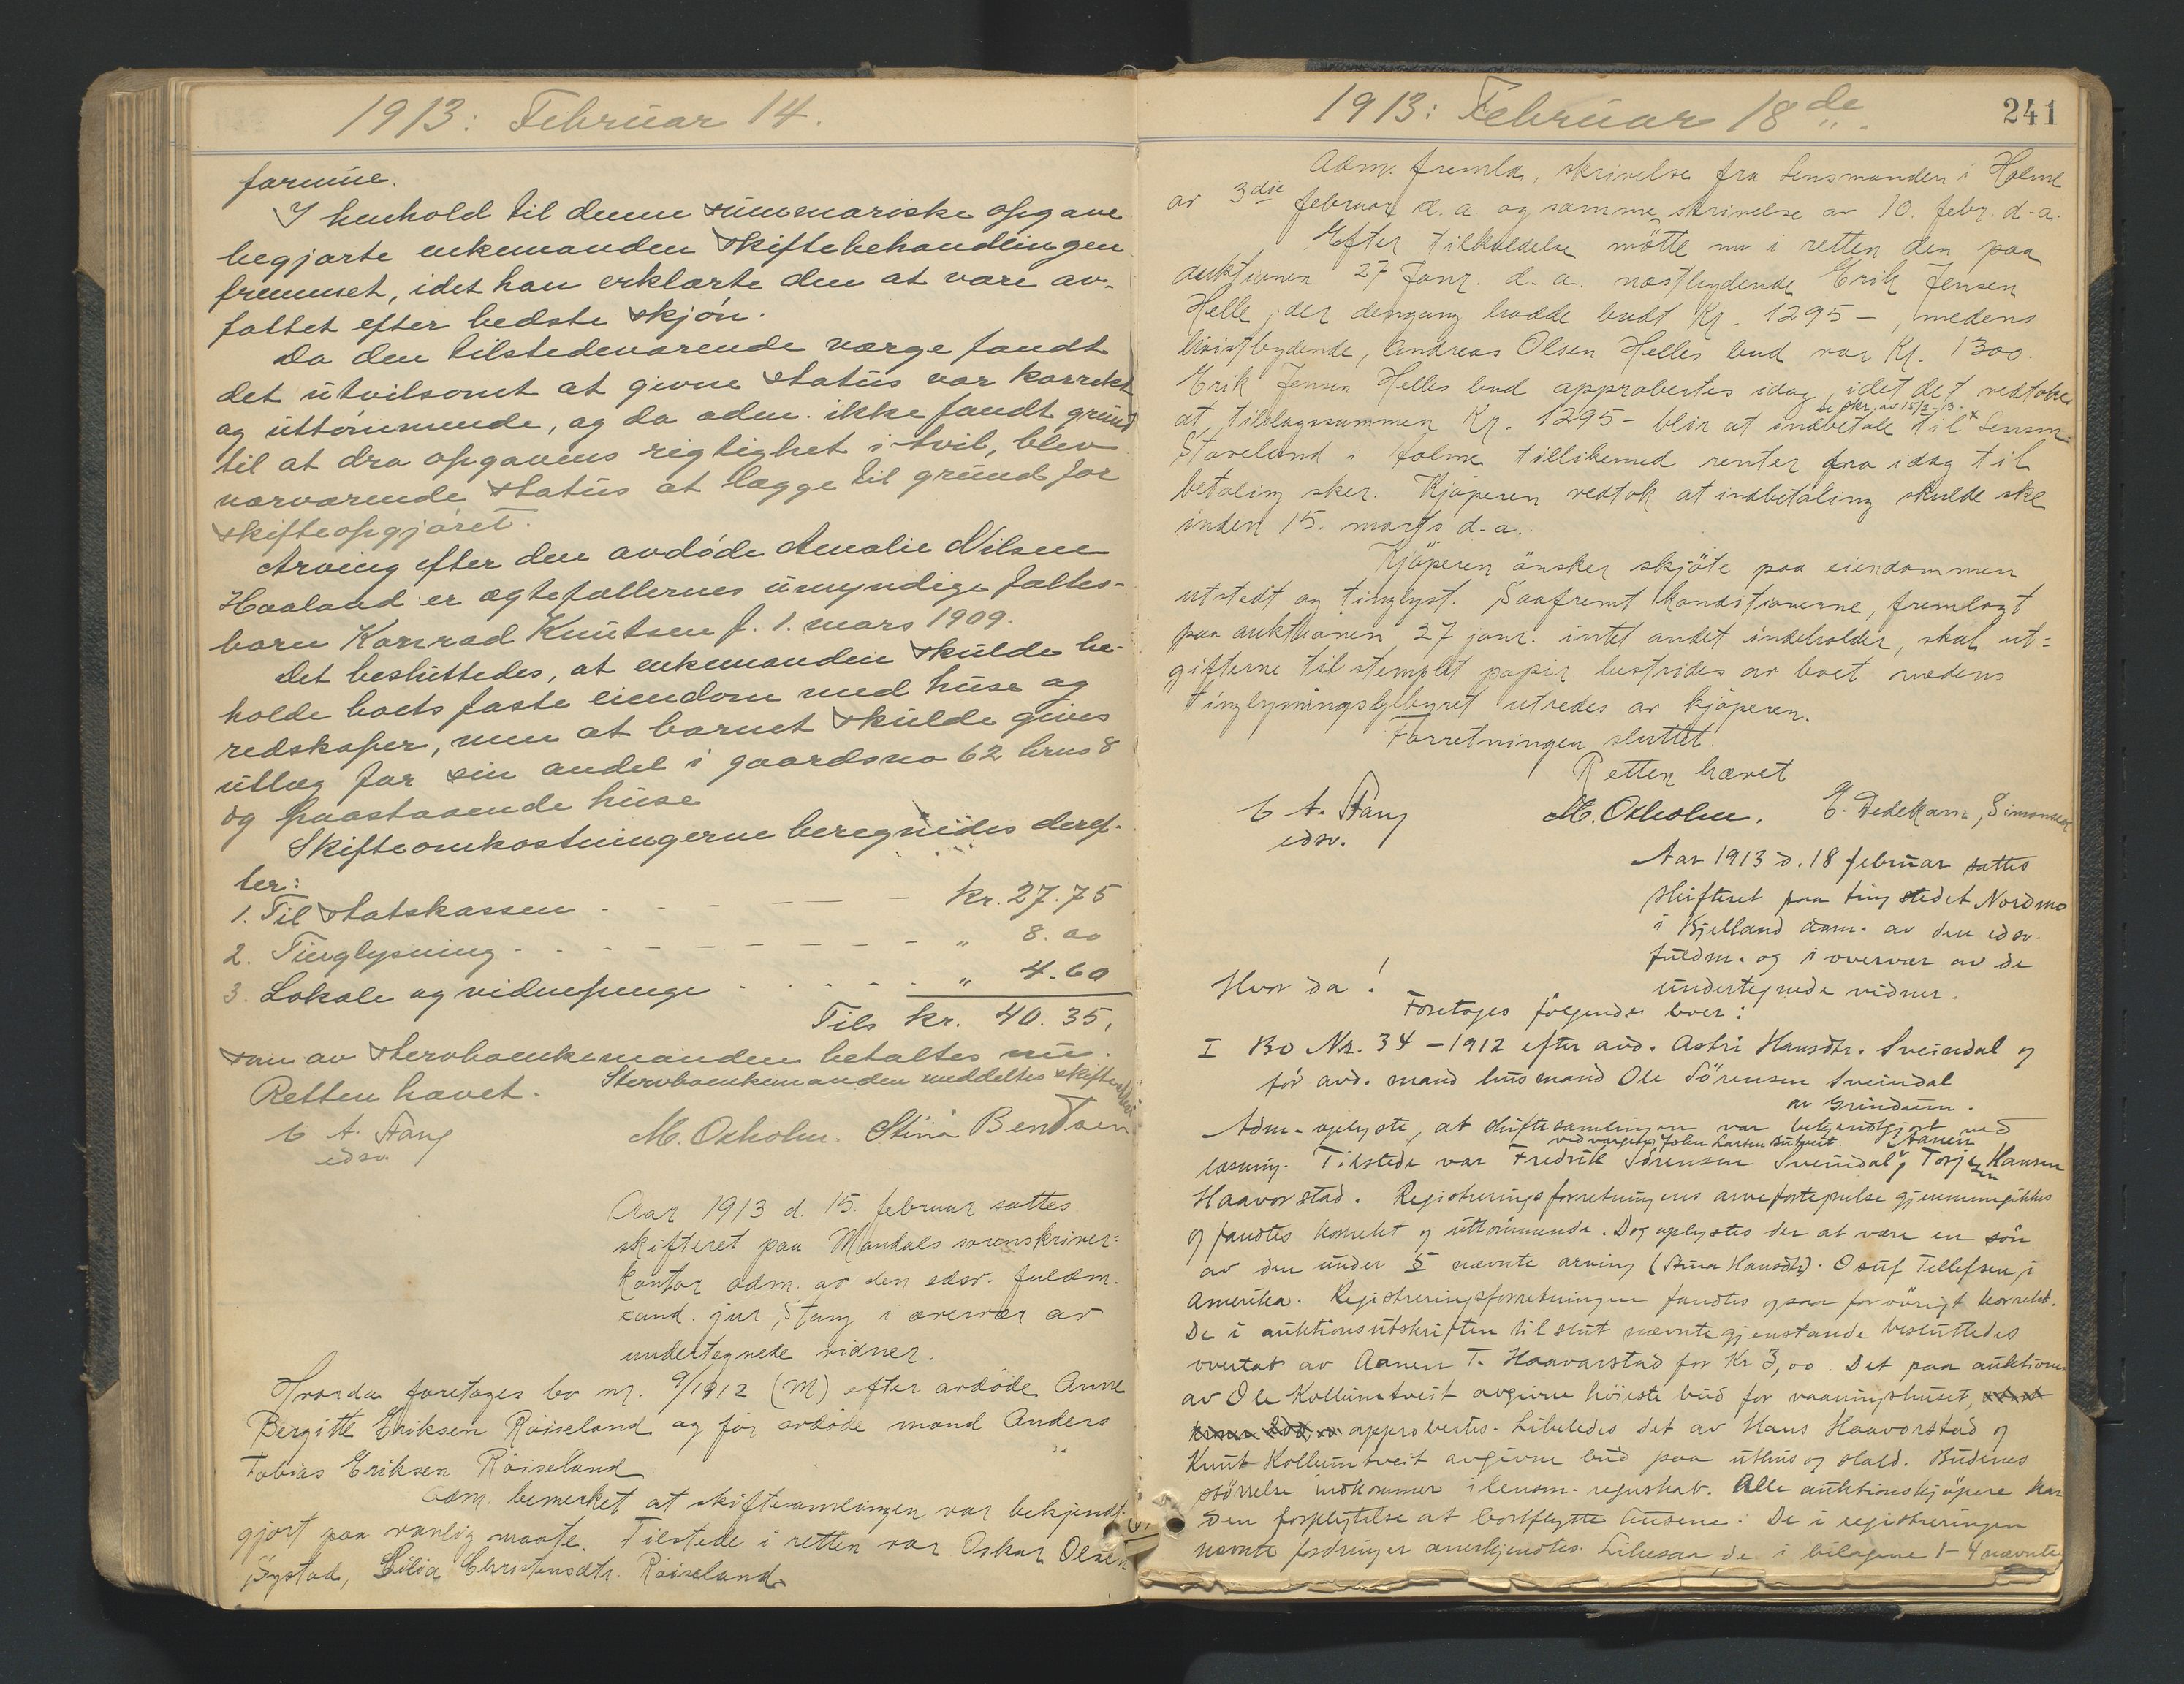 1913: Februar 14.
formue.
I henhold til denne summariske opgave
begjærte enkemanden skiftebehandlingen
fremmet, idet han erklærte den at være av-
fattet efter bedste skjøn.
Da den tilstedeværende værge fandt
det utvilsomt at givne status var korrekt
og uttømmende, og da adm. ikke fandt grund
til at dra opgavens rigtighet i tvil, blev
nærværende status at lægge til grund for
skifteopgjøret.
Arving efter den avdøde Amalie Nilsen
Haaland er ægtefællernes umyndige fælles-
barn Konrad Knutsen f. 1. mars 1909.
Det besluttedes, at enkemanden skulde be-
holde boets faste eiendom med huse og
redskaper, men at barnet skulde gives
utlæg for sin andel i gaardsno 62 brno 8
og paastaaende huse
Skifteomkostningerne beregnedes deref-
ter:
1. Til statskassen - - - - kr. 27.75
2. Tinglysning - - - - - - - „ 8.00
3. Lokale og vidnepenge - - - - „ 4.60
Tils kr. 40.35,
som av stervboenkemanden betaltes nu.
Stervboenkemanden meddeltes skifte
Retten hævet.
A. Stang M. Oxholm. Stina Bendtsen
edsv.
Aar 1913 d. 15. februar sattes
skifteret paa Mandals sorenskriver-
kontor adm. av den edsv. fuldm.
cand. jur Stang i overvær av
undertegnede vidner.
Hvorda foretoges bo nr. 9/1912 (M) efter avdöde Anne
Bergitte Eriksen Röiseland og för avdöde mand Anders
Tobias Eriksen Röiseland
Adm. bemerket at skiftesamlingen var bekjendt-
gjort paa vanlig maate. Tilstede i retten var Oskar Olsen
Systad, Lilia Christensdtr. Röiseland.
1913: Februar 18de.
241
Adm. fremla, skrivelse fra Lensmanden i Holme
av 3dje februar d.a og samme skrivelse av 10. febr. d.a.
Efter tilkaldelse mötte nu i retten den paa
auktionen 27 Janr. d.a. næstbydende Erik Jensen
Helle, der dengang hadde budt Kr. 1295-, medens
höistbydende, Andreas Olsen Helles bud var Kr. 1300.
Erik Jensen Helles bud approbertes idag, idet det vedtokes
se skr. av 15/2-13.
at tilslagssummen Kr. 1295- blir at indbetale til x Lensm.
Staveland i Holme tillikemed renter fra idag til
betaling sker. Kjöperen vedtok at indbetaling skulde ske
inden 15. marts d.a.
Kjöperen önsker skjöte paa eiendommen
utstedt og tinglyst. Saafremt konditionerne, fremlagt
paa auktionen 27 janr. intet andet indeholder, skal ut-
gifterne til stemplet papir bestrides av boet medens
tinglysningsgebyret utredes av kjöperen.
Forretningen sluttet.
Retten hævet
A. Stang M. Oxholm. E. Dedekam, Simonsen
edsv.
Aar 1913 d. 18 februar sattes
skifteret paa tingstedet Nordmo
i Bjelland adm. av den edsv.
fuldm. og i overvær av de
undertegnede vidner.
Hvor da!
Foretoges følgende boer:
I Bo Nr. 34-1912 efter avd. Astri Hansdtr. Sveindal og
før avd. mand husmand Ole Sörensen Sveindal
av Grindum.
Adm. oplyste, at skiftesamlingen var bekjendtgjort ved
ved værgen John Larsen Aanen
læsning. Tilstede var Fredrik Sörensen Sveindal, Torjesen Hansen
Haavorstad. Registreringsforretningens arvefortegnelse gjennemgikkes
og fandtes korrekt og uttømmende. Dog oplystes der at være en søn
av den under 5 nævnte arving (Anna Hansdtr). Osuf Tellefsen i
Amerika. Registreringsforretningen fandtes ogsaa forövrigt korrekt.
De i auktionsutskriften til slut nævnte gjenstande besluttedes
overtat av Aanen T. Haavarstad for Kr 3,00. Det paa auktionen
av Ole Kollumtveit avgivne höieste bud for vaaningshuset,
approbertes. Likeledes det av Hans Haavorstad og
Knut Kollumtveit avgivne bud paa uthus og stald. Budenes
størrelse indkommer i lensm. regnskab. Alle auktionskjöpere har
den forpligtelse at bortflytte husene. De i registreringen
nævnte fordringer anerkjendtes. Likesaa de i bilagene 1-4 nævnte